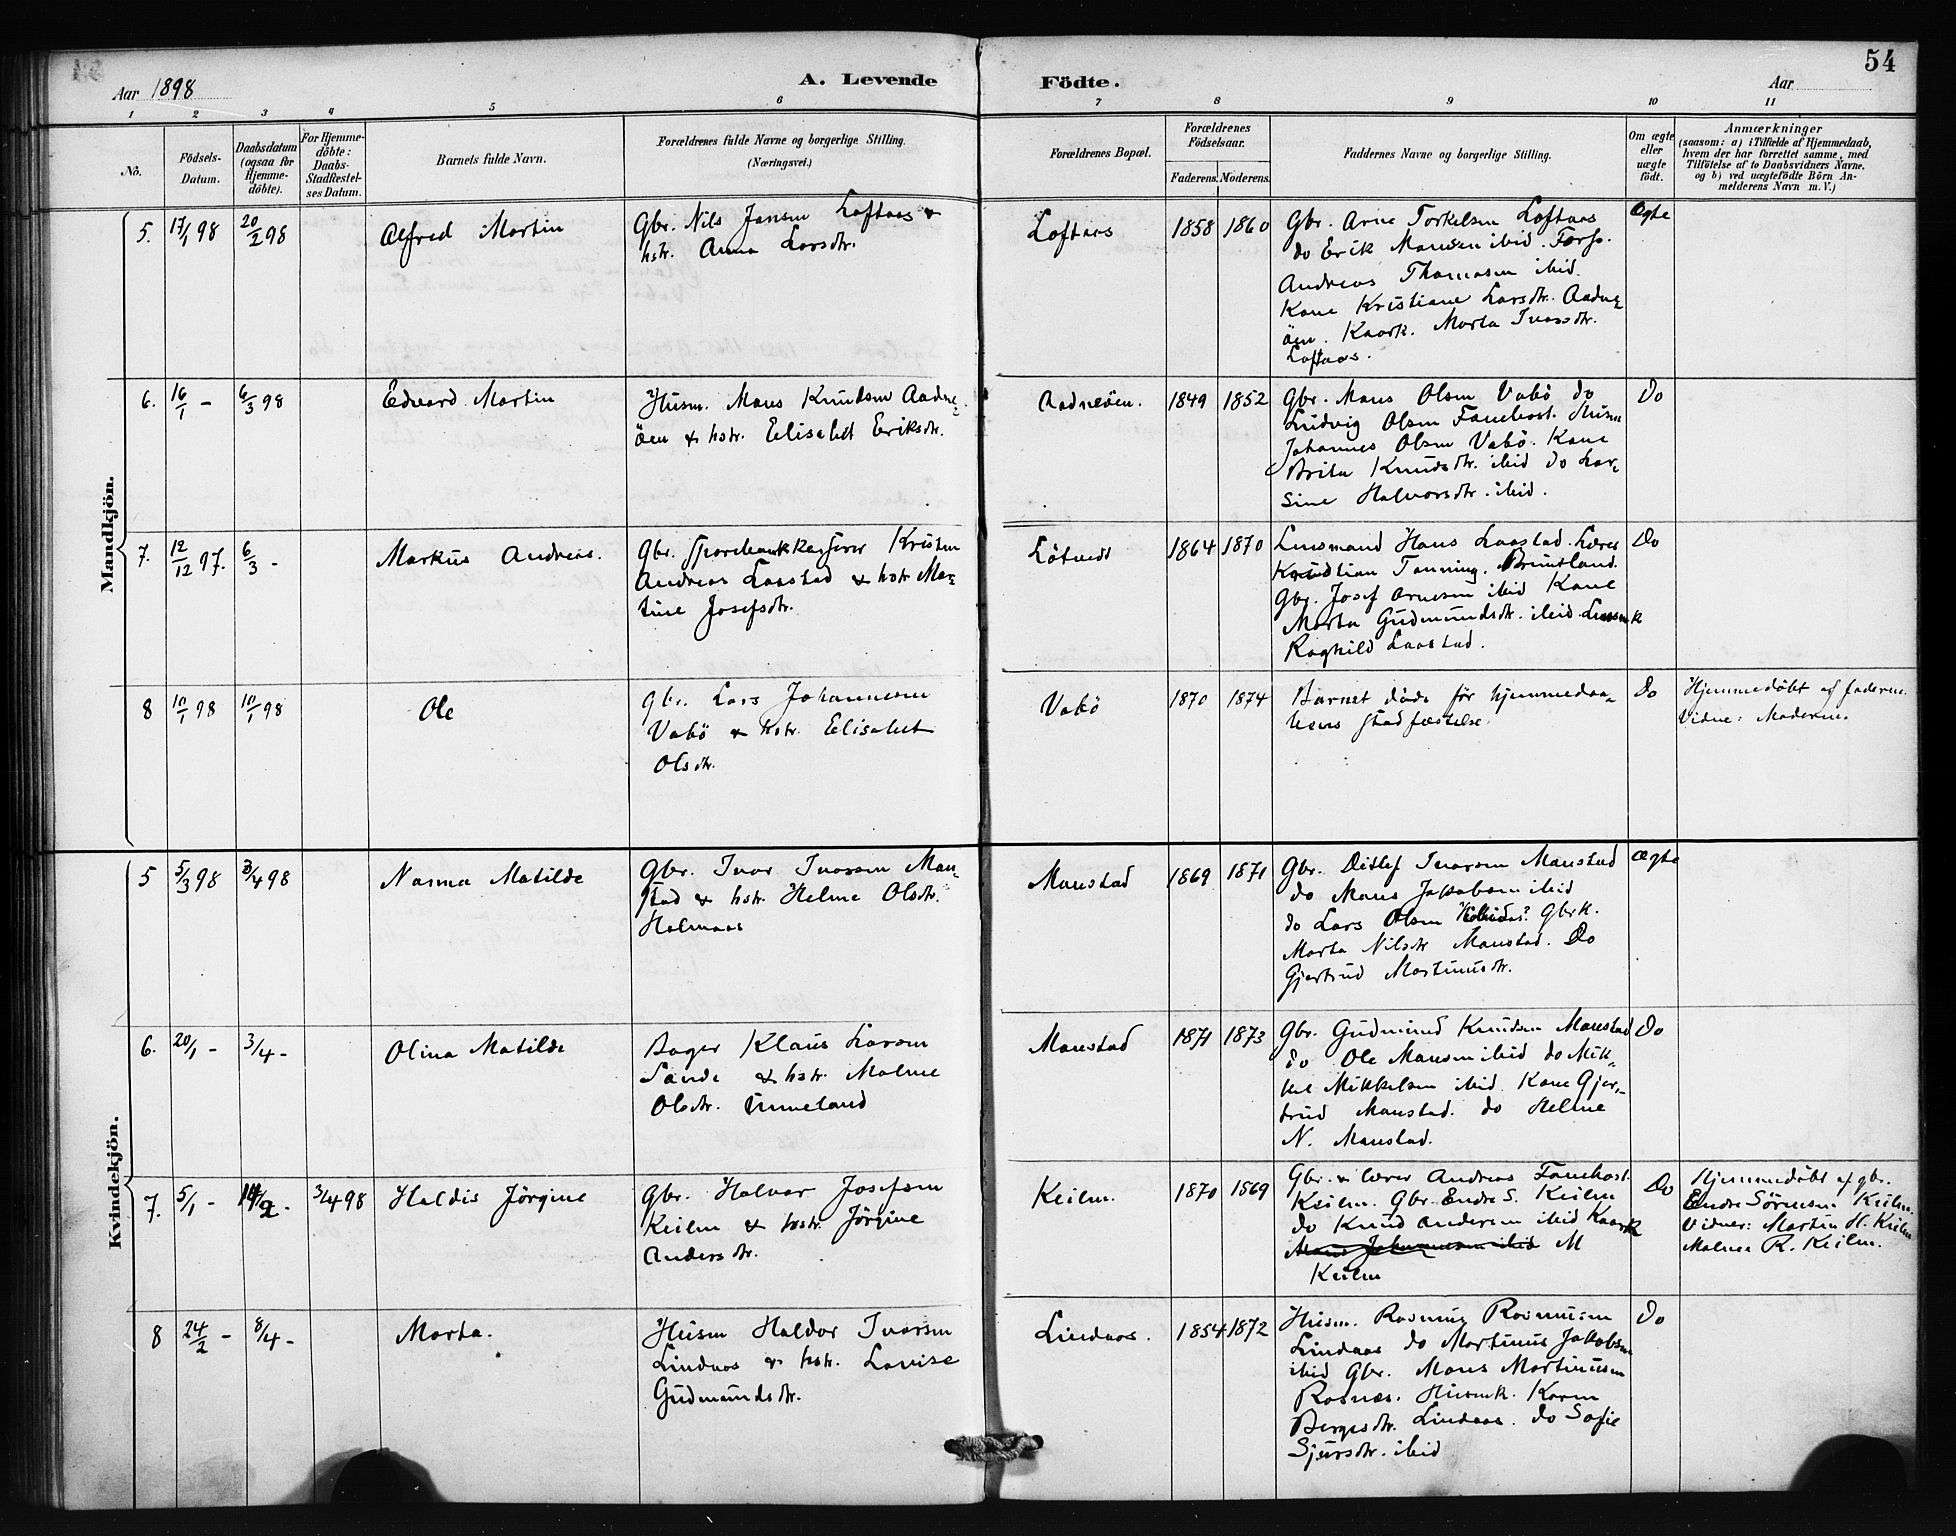 54
Aar 1898
A. Levende
Födte.
Aar
1 2 3 4 5 6 7 8 9 10 11
No.
Födsels-
Datum.
Daabsdatum
(ogsaa for
Hjemme-
döbte).
For Hjemme-
döbte:
Daabs-
Stadfæstel-
ses Datum.
Barnets fulde Navn.
Forældrenes fulde Navne og borgerlige Stilling.
(Næringsvei.)
Forældrenes Bopæl.
Forældrenes
Födselsaar.
Faderens. Moderens.
Faddernes Navne og borgerlige Stilling.
Om ægte
eller
uægte
födt.
Anmærkninger
(saasom: a) i Tilfælde af Hjemmedaab,
hvem der har forrettet samme, med
Tilföielse af to Daabsvidners Navne.
og b) ved uægtefödte Börn An-
melderens Navn m. V.)
Mandkjön.
5. 17/1 98 20/2 98
Alfred Martin
Gbr. Nils Jansen Loftaas &
hstr. Anna Larsdtr.
Loftaas
1858 1860
Gbr. Arne Torkelsen Loftaas
do Erik Mansen ibid. Forp.
Andreas Thomasen ibid.
Kone Kristiane Larsdtr. Aadne-
öen. Kaark. Marta Ivarsdtr.
Loftaas.
Ægte
6. 16/1 - 6/3 98
Edvard Martin
Husm. Mons Knudsen Aadne-
öen & hstr. Elisabet Eriksdtr.
Aadneöen.
1849 1852
Gbr. Mons Olsen Vabö do
Ludvig Olsen Fanebost. Husm
Johannes Olsen Vabö. Kone
Brita Knudsdtr. ibid do Lar-
sine Halvorsdtr. ibid.
Do
7. 12/12 97. 6/3 -
Markus Andreas.
Gbr. Sparebankkasserer Kristen
Andreas Laastad & hstr. Mar-
tine Josefsdtr.
Lötvedt
1864 1870
Lensmand Hans Laastad. Lærer
Kristian Tonning. Bruntland.
Gbr. Josef Arnesen ibid Kone
Marta Gudmundsdtr. ibid. Lensmk
Raghild Laastad.
Do
8 10/1 98 10/1 98
Ole
Gbr. Lars Johannesen
Vabö & hstr. Elisabet
Olsdtr.
Vabö
1870 1874
Barnet döde för hjemmedaa-
bens stadfæstelse.
Do
Hjemmedöbt af faderen.
Vidne: Moderen.
Kvindekjön.
5 5/3 98 3/4 98
Norma Matilde
Gbr. Ivar Ivarsen Man-
stad & hstr. Helene Olsdtr.
Holmaas
Monstad
1869 1871
Gbr. Ditlef Ivarsen Monstad
do Mons Jakobsen ibid
do Lars Olsen Gbrk.
Marta Nilsdtr Monstad. Do
Gjertrud Martinusdtr.
Ægte
6. 20/1 - 3/4 -
Olina Matilde
Bager Klaus Larsen
Sande & hstr. Malene
Olsdtr. Unneland
Monstad
1871 1873
Gbr. Gudmund Knudsen Monstad
do Ole Monsen ibid do Mik-
kel Mikkelsen ibid. Kone Gjer-
trud Monstad. do Helene
N. Monstad.
Do
7. 5/1 - 14/2 - 3/4 98
Haldis Jörgine
Gbr. Halvor Josefsen
Keilen & hstr. Jörgine
Andersdtr.
Keilen.
1870 1869
Gbr. & lærer Andreas Fanebost.
Keilen. Gbr. Endre S. Keilen
do Knud Andersen ibid Kaark
M
Keilen
Do
Hjemmedöbt af gbr.
Endre Sörensen Keilen.
Vidner: Martin H. Keilen
Malene R. Keilen.
8 24/2 - 8/4 -
Marta.
Husm Haldor Ivarsen
Lindaas & hstr. Lovise
Gudmundsdtr.
Lindaas.
1854 1872
Husm. Rasmus Rasmusen
Lindaas do Martinus Jakobsen
ibid Gbr. Mons Martinusen
Rosnæs. Husmk. Karen
Bergesdtr. Lindaas. do Sofie
Sjursdtr. ibid
Do